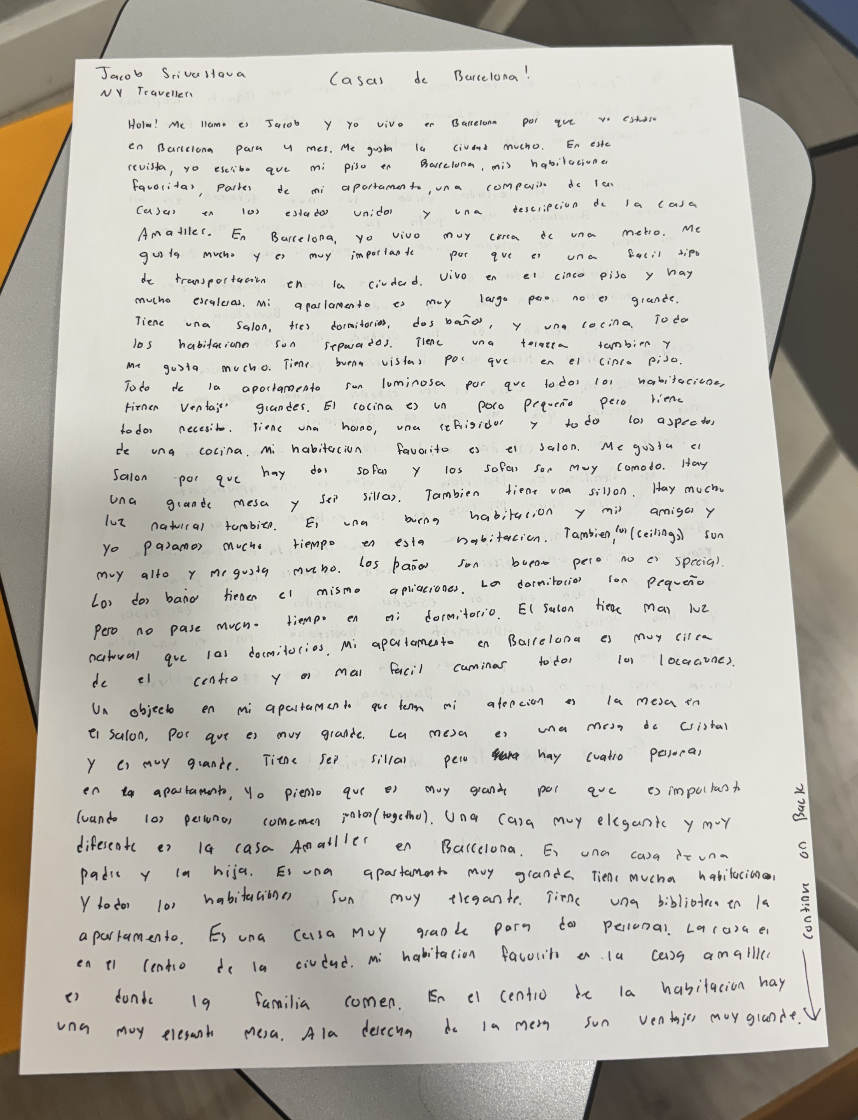 Jacob Srivastava
Casas de Barcelona!
NY Travellers
Hola! Me llamo es Jacob y yo vivo en Barcelona por que yo estudio
en Barcelona para 4 mes. Me gusta la ciudad mucho. En este
revista, yo escribo que mi piso en Barcelona, mis habitaciones
favoritas, partes de mi apartamento, una compariso de las
casas en los estados unidos y una descripcion de la casa
Amatller. En Barcelona, yo vivo muy cerca de una metro. Me
gusta mucho y es muy importante por que es una facil tipo
de transportacion en la ciudad. Vivo en el cinco piso y hay
mucho escaleras. Mi apartamento es muy largo pero no es grande.
Tiene una salon, tres dormitorios, dos baños, y una cocina. Todo
los habitacione son separados. Tiene una terazza tambien y
me gusta mucho. Tiene buena vistas por que en el cinco piso.
Todo de la apartamento son luminosa por que todos los habitaciones
tienen ventajes grandes. El cocina es un poco pequeño pero tiene
todos necesito. Tiene una horno, una refrigidor y todo los aspectos
de una cocina. Mi habitacion favorito es el salon. Me gusta el
salon por que hay dos sofas y los sofas son muy comodo. Hay
una grande mesa y seis sillas. Tambien tiene una sillon. Hay mucho
luz natural tambien. Es una buena habitacion y mis amigos y
yo pasamos mucho tiempo en esta habitacion. Tambien, los (ceilings) son
muy alto y me gusta mucho. Los baño son bueno pero no es special.
Los dos baño tienen el mismo apliaciones. Los dormitorios son pequeño
pero no pase mucho tiempo en mi dormitorio. El salon tiene mas luz
natural que las dormitorios. Mi apartamento en Barcelona es muy cerca
de el centro y es mas facil caminar todos los locaciones.
Un objecto en mi apartamento que tiene mi atencion es la mesa en
el salon. Por que es muy grande. La mesa es una mesa de cristal
y es muy grande. Tiene seis sillas pero hay cuatro personas
en la apartamento. Yo pienso que es muy grande por que es importante
cuando los personas comemen juntos (together). Una casa muy elegante y muy
diferente es la casa Amatller en Barcelona. Es una casa de una
padre y la hija. Es una apartamento muy grande. Tiene mucha habitaciones
y todos los habitaciones son muy elegante. Tiene una biblioteca en la
apartamento. Es una casa muy grande para dos personas. La casa es
en el centro de la ciudad. Mi habitacion favorito en la casa amatller
es donde la familia comen. En el centro de la habitacion hay
una muy elegante mesa. A la derecha de la mesa son ventajes muy grande.
continue on Back